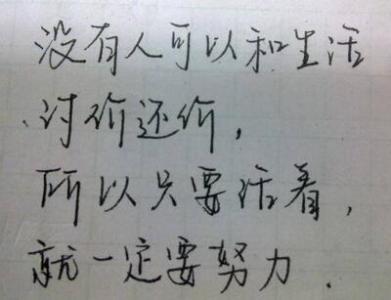 没有人可以和生活
讨价还价，
所以只要活着，
就一定要努力.